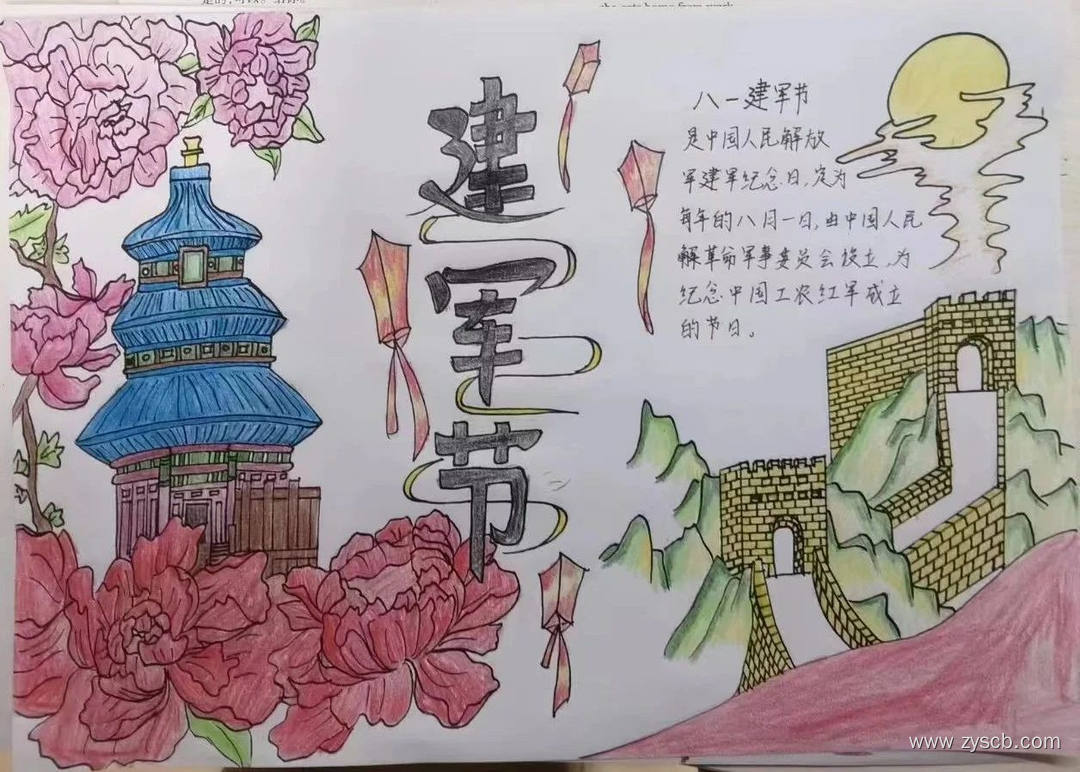 建军节
八一建军节
是中国人民解放
军建军纪念日,定为
每年的八月一日,由中国人民
解革命军事委员会设立,为
纪念中国工农红军成立
的节日。
www.zyscb.com